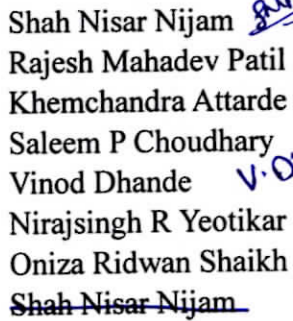 Shah Nisar Nijam
Rajesh Mahadev Patil
Khemchandra Attarde
Saleem P Choudhary
Vinod Dhande V.D
Nirajsingh R Yeotikar
Oniza Ridwan Shaikh
Shah Nisar Nijam